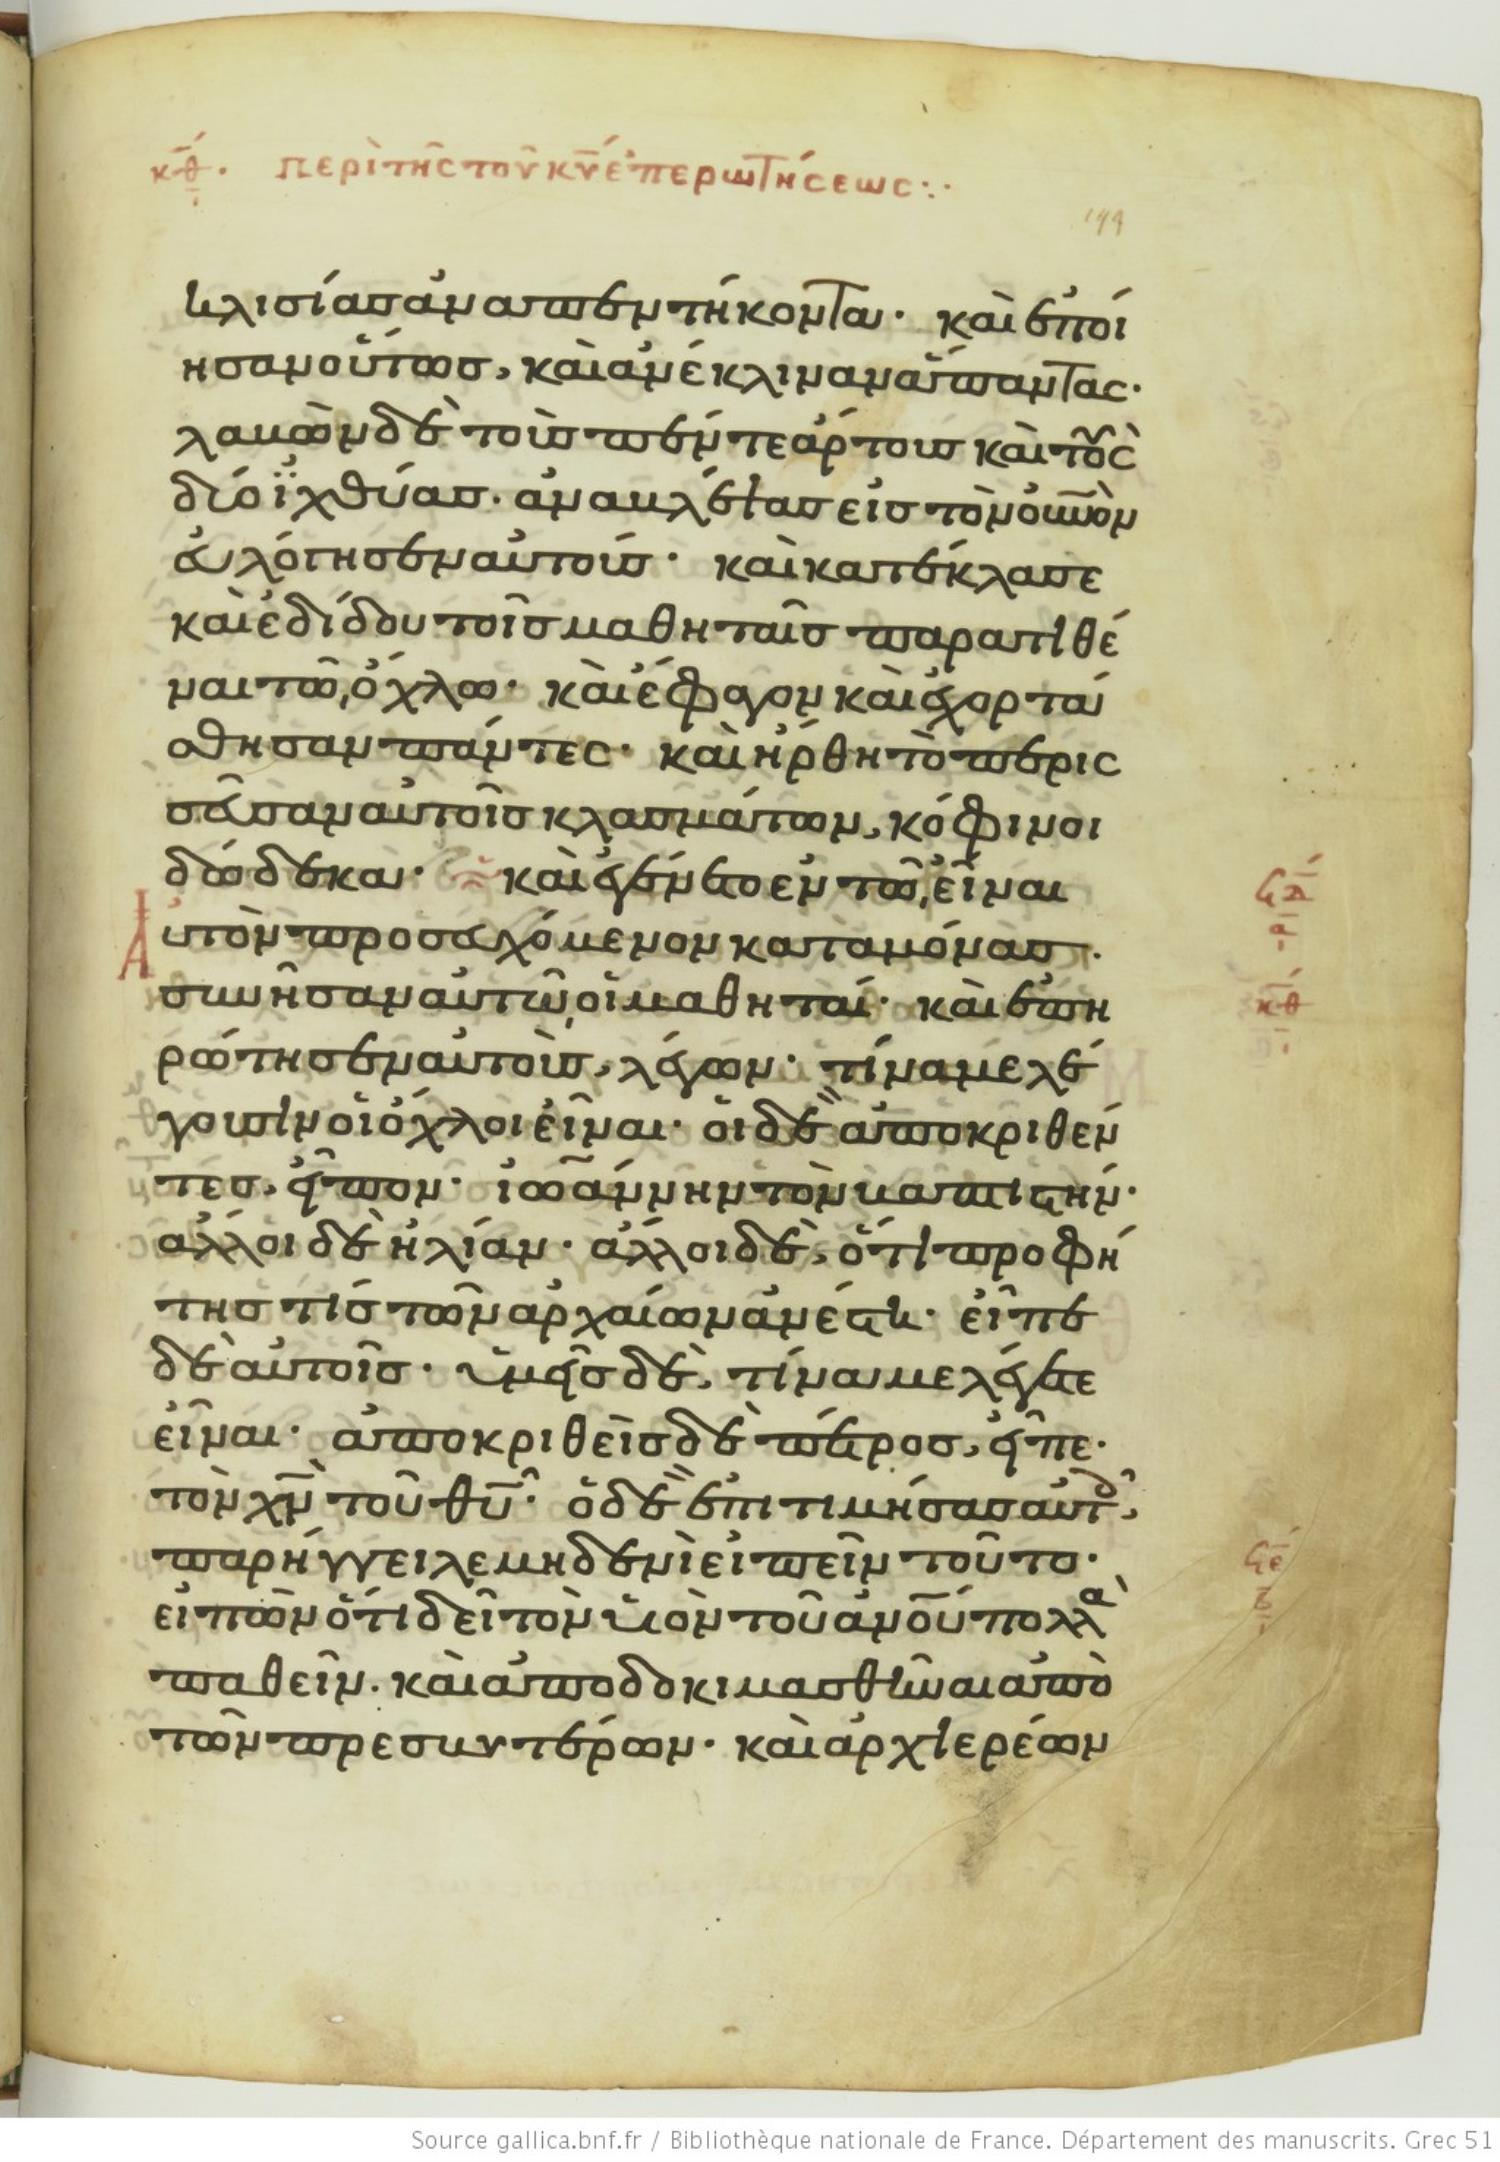 κθ. περὶ τῆς τοῦ κυ ἐπερωτήσεως:·
199
κλισίας ἀνα πεντήκοντα· καὶ ἐποί
ησαν οὕτως, καὶ ἀνέκλιναν ἅπαντας·
λαβὼν δὲ τοὺς πέντε ἄρτους καὶ τοὺς
δύο ἰχθύας· ἀναβλέψας εἰς τὸν οὐνὸν
εὐλόγησεν αὐτούς· καὶ κατέκλασε
καὶ ἐδίδου τοῖς μαθηταῖς παρατιθέ
ναι τῶ ὄχλω· καὶ ἔφαγον καὶ ἐχορτά
σθησαν πάντες· καὶ ἤρθη τὸ περισ
σεῦσαν αὐτοῖς κλασμάτων, κόφινοι
δώδεκα· καὶ ἐγένετο ἐν τῶ εἶναι
Αὐτὸν προσευχόμενον καταμόνας·
συνῆσαν αὐτῶ οἱ μαθηταί· καὶ ἐπη
ρώτησεν αὐτοὺς, λέγων· τίνα με λέ
γουσιν οἱ ὄχλοι εἶναι· οἱ δὲ ἀποκριθέν
τες, εἶπον· ἰωάννην τὸν βαπτιστήν·
ἄλλοι δὲ ἠλίαν· ἄλλοι δὲ, ὅτι προφή
της τίς τῶν ἀρχαίων ἀνέστη· εἶπε
δὲ αὐτοῖς· ὑμεῖς δὲ, τίνα με λέγετε
εἶναι· ἀποκριθεὶς δὲ πέτρος, εἶπε·
τὸν χν τοῦ θυ· ὁ δὲ ἐπιτιμήσας αὐτοῖς,
παρήγγειλε μηδενὶ εἰπεῖν τοῦτο·
εἰπὼν ὅτι δεῖ τὸν υἱὸν τοῦ ἀνου πολλὰ
παθεῖν· καὶ ἀποδοκιμασθῆναι ἀπὸ
τῶν πρεσβυτέρων· καὶ ἀρχιερέων
ϟδ
α
κθ
ϟε
β
Source gallica.bnf.fr / Bibliothèque nationale de France. Département des manuscrits. Grec 51